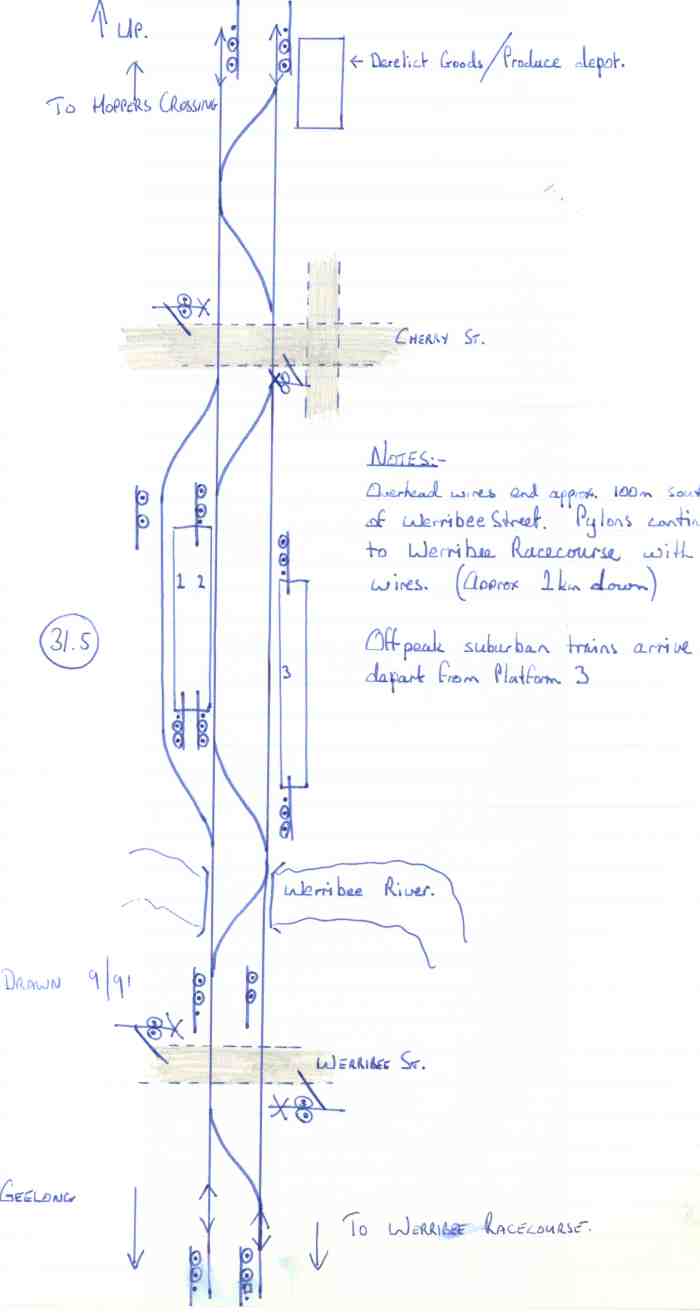 UP.
← Derelict Goods/Produce depot.
To Hoppers Crossing
Cherry St.
Notes:-
Overhead wires end approx. 100m sout
of Werribee Street. Pylons contin
to Werribee Racecourse with
wires. (Approx 1km down)
1 2
31.5
Off peak suburban trains arrive
depart from Platform 3
3
Werribee River.
Drawn 9/91
Werribee St.
Geelong
To Werribee Racecourse.